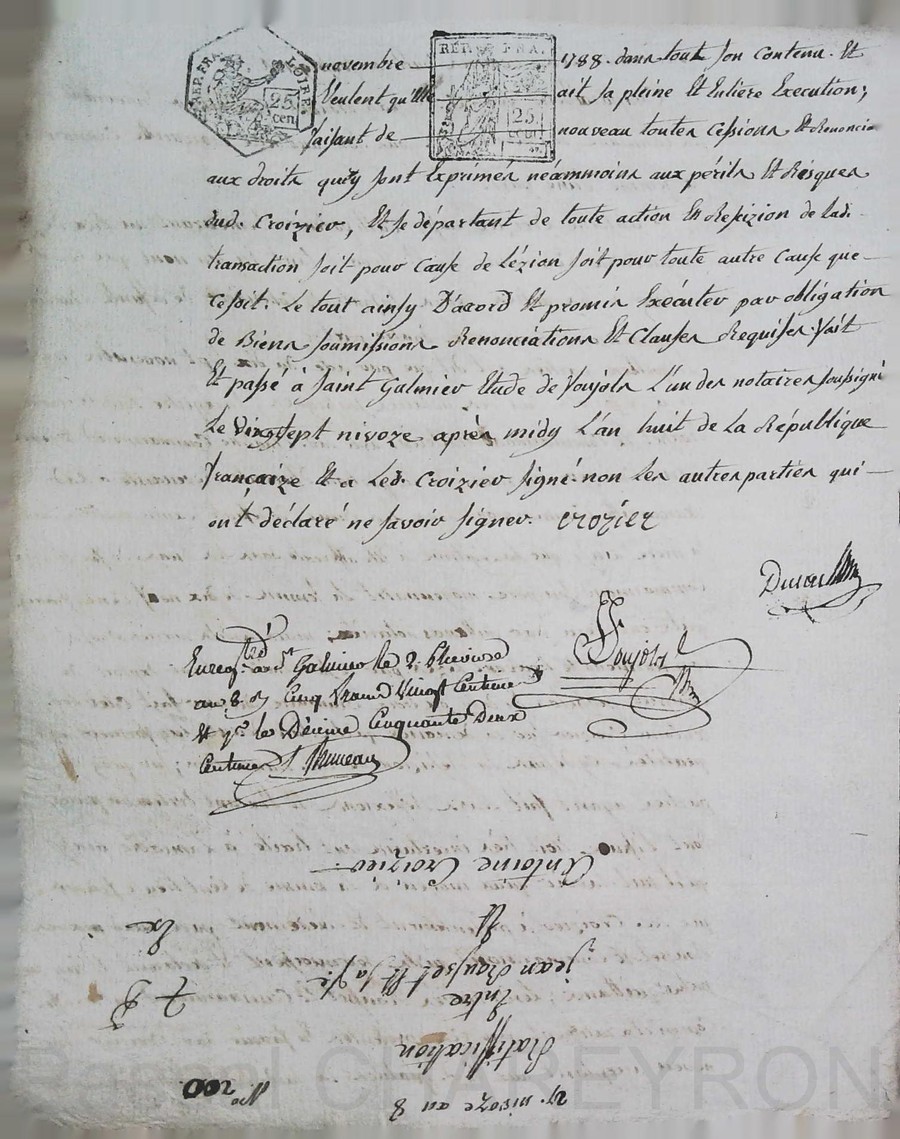 REP. FRA. LOIRE
25 cen
REP. FNA.
25 cen
novembre 1788. dans tout son contenu. Et
Veulent qu'elle ait sa pleine Et Entière Execution;
faisant de nouveau toutes cessions Et Renoncia
aux droits qu'y sont Exprimés néammoins aux périls Et Risques
dud. Croizier, Et se départant de toute action En Resizion de lad.
transaction soit pour cause de Lézion soit pour toute autre cause que
cesoit. Le tout ainsy D'acord Et promis Exécuter par obligation
de Biens soumissions Renonciations Et Clauses Requises fait
Et passé à Saint Galmier Etude de Soujols L'un des notaires soussigné
Le Vingtsept nivoze après midy L'an huit de La République
françaize Et a Led. Croizier signé non Les autres parties qui
ont déclaré ne savoir signer. crozier
Soujols
Enregtré a St Galmier le 2 pluviose
an 8 Cinq francs Vingt Centimes
Et pr le Décime Cinquante Deux
Centimes
27. nivoze an 8
No 200
Ratiffication
Entre
jean Rousset Et sa fe
Et
Antoine Croizier
CHAREYRON